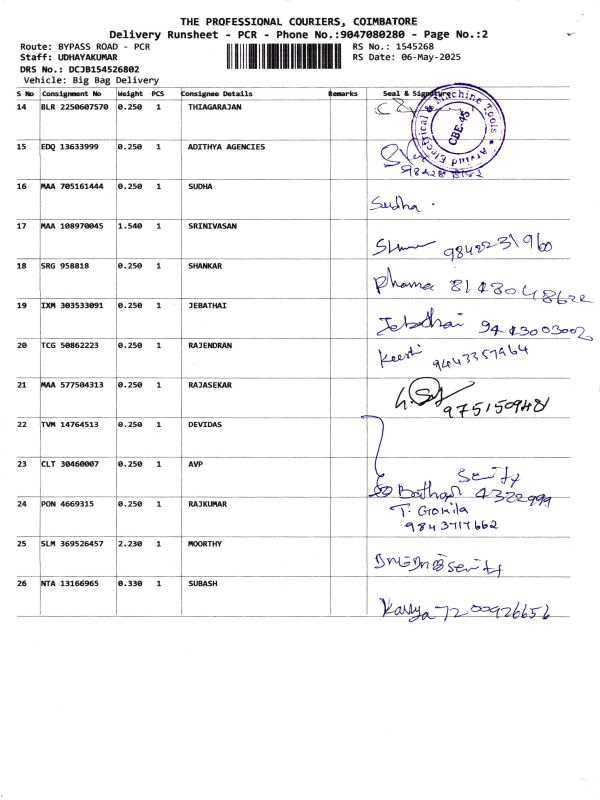 THE PROFESSIONAL COURIERS, COIMBATORE
Delivery Runsheet - PCR - Phone No.:9047080280 - Page No.:2
Route: BYPASS ROAD - PCR
Staff: UDHAYAKUMAR
DRS No.: DCJB154526802
Vehicle: Big Bag Delivery
RS No.: 1545268
RS Date: 06-May-2025
S No Consignment No Weight PCS Consignee Details Remarks Seal & Signature
14 BLR 2250607570 0.250 1 THIAGARAJAN
Arvind Electrical & Machine Tools
CBE-45
15 EDQ 13633999 0.250 1 ADITHYA AGENCIES
16 MAA 705161444 0.250 1 SUDHA
Sudha.
17 MAA 108970045 1.540 1 SRINIVASAN
9842231960
18 SRG 958818 0.250 1 SHANKAR
19 IXM 303533091 0.250 1 JEBATHAI
Jebathai 9443003002
20 TCG 50862223 0.250 1 RAJENDRAN
Keerthi 9443357964
21 MAA 577504313 0.250 1 RAJASEKAR
22 TVM 14764513 0.250 1 DEVIDAS
23 CLT 30460007 0.250 1 AVP
4322999
24 PON 4669315 0.250 1 RAJKUMAR
T. Gokila
9843717662
25 SLM 369526457 2.230 1 MOORTHY
26 NTA 13166965 0.330 1 SUBASH
Kavya 7200926656